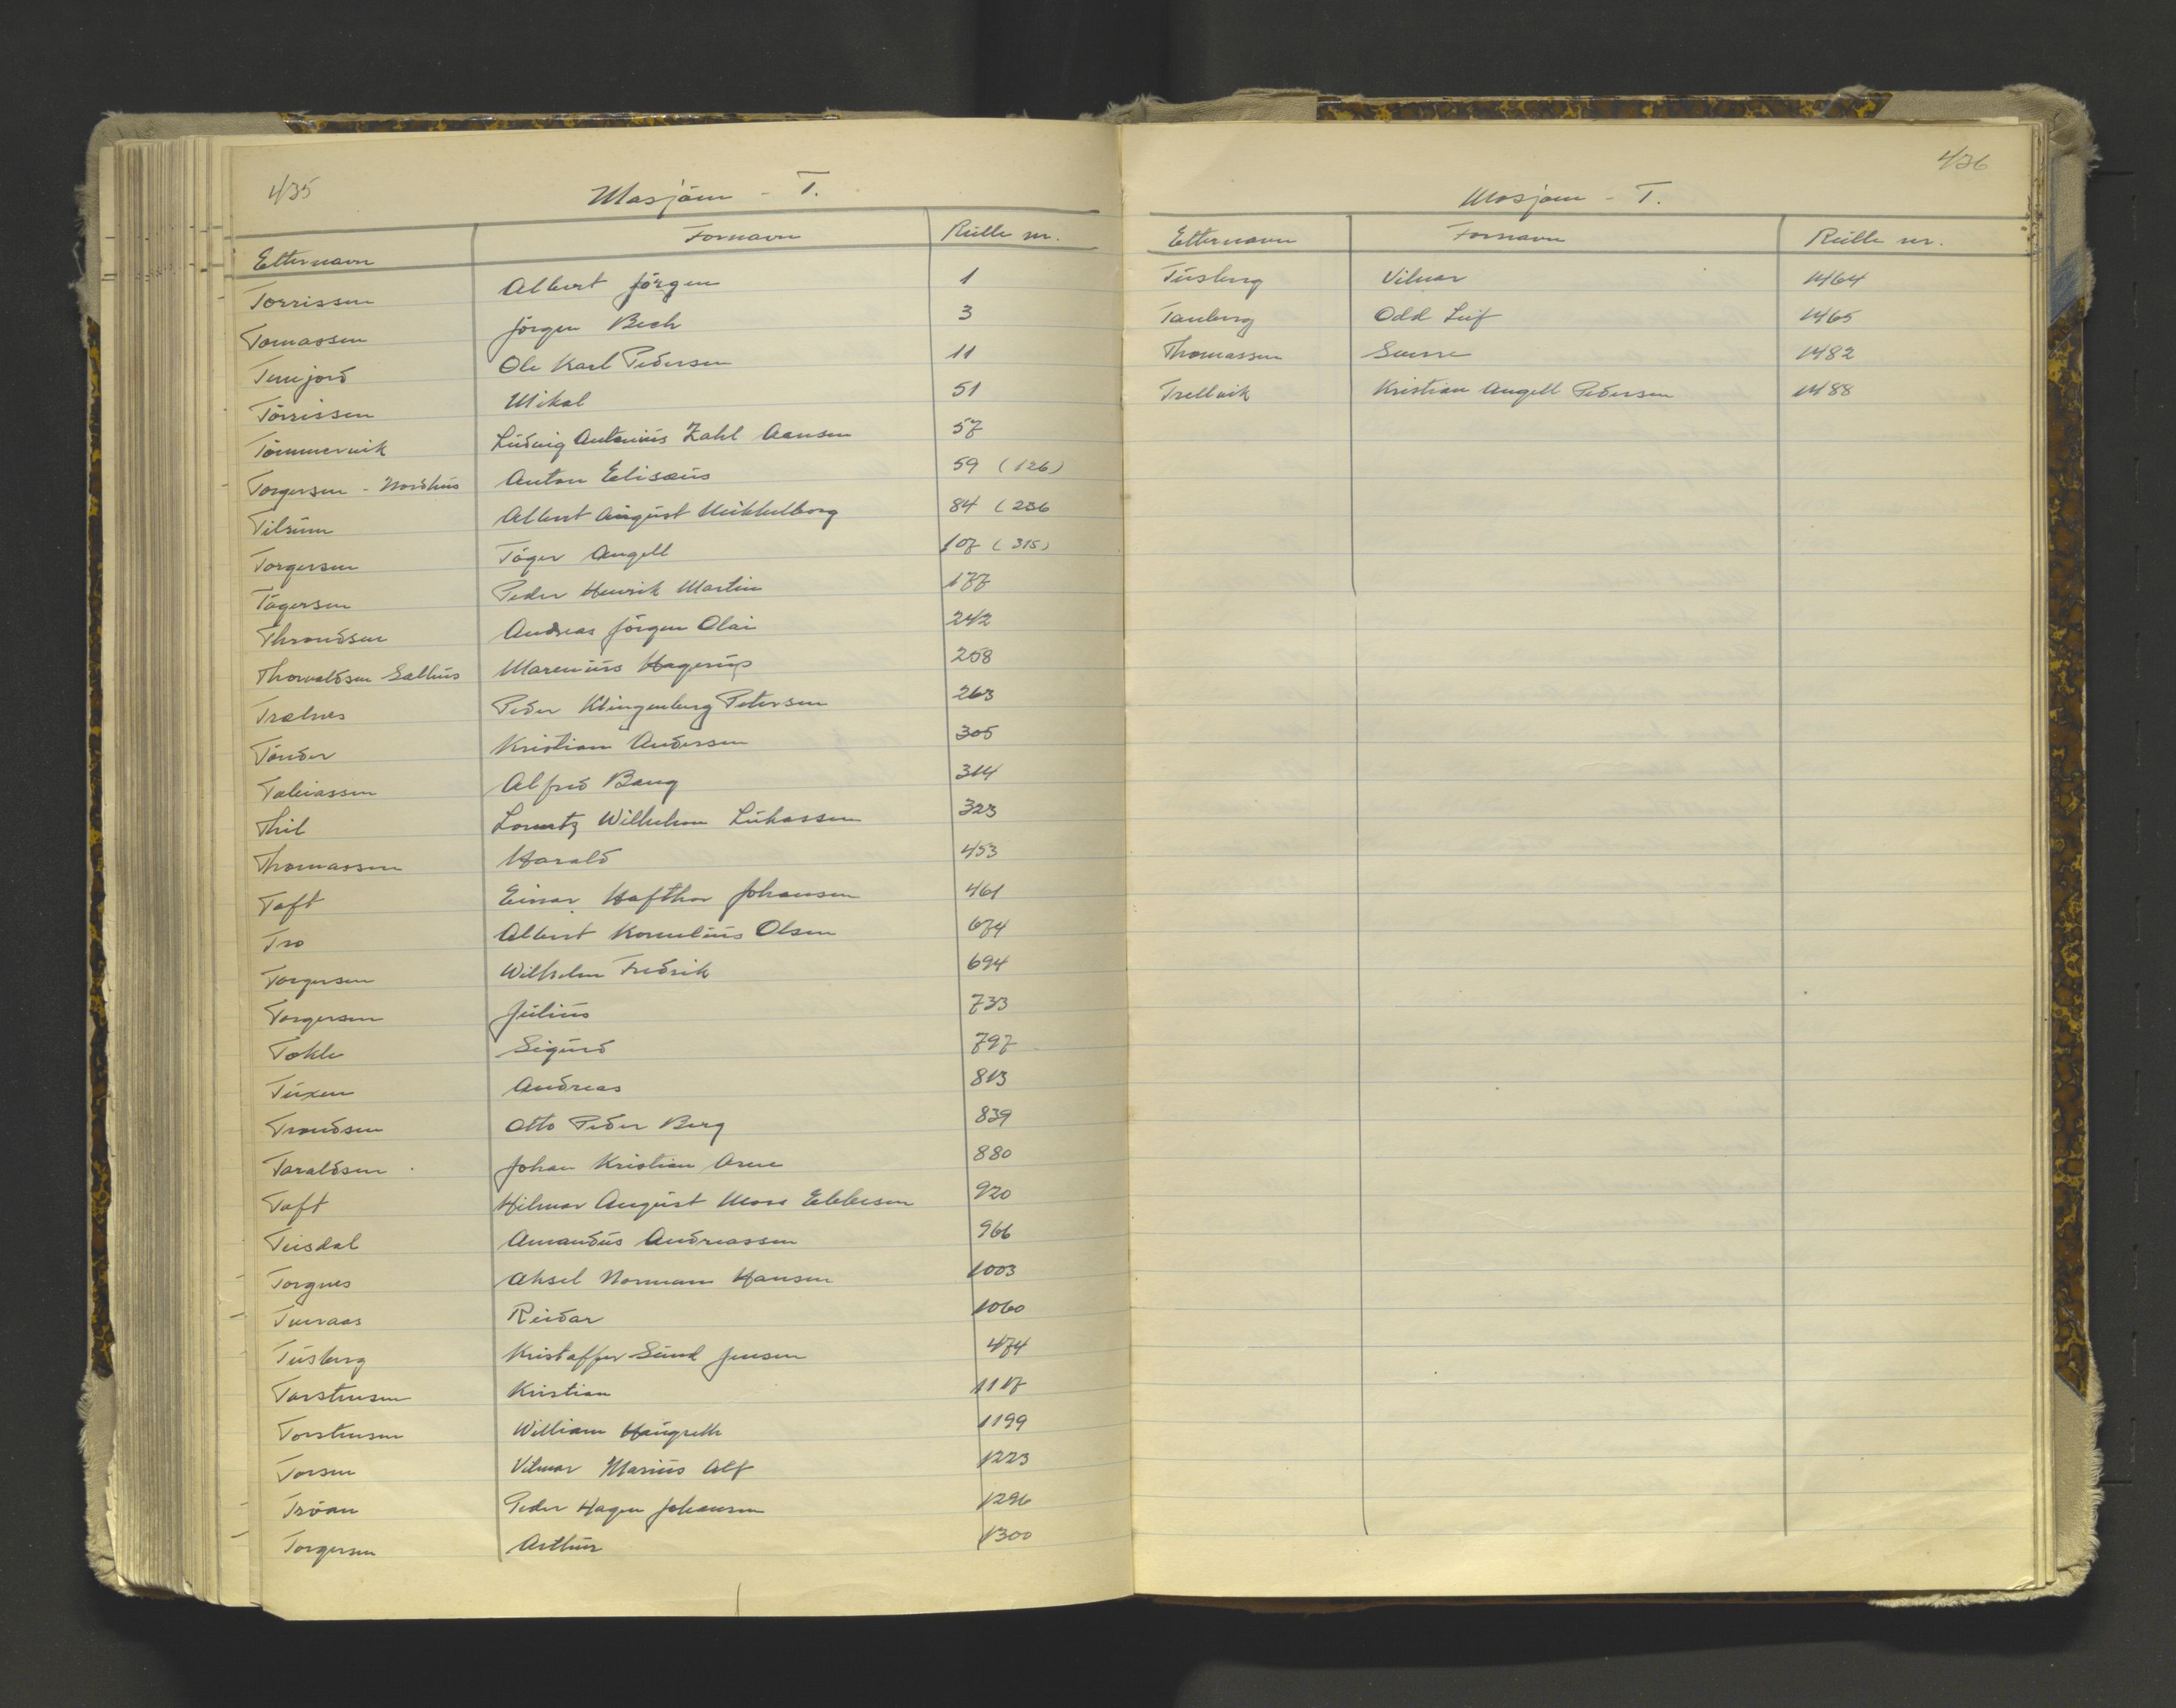 435
Mosjöen - T.
Etternavn Fornavn Rulle nr.
Torrissen Albert Jörgen 1
Tomassen Jörgen Bech 3
Ole Karl Pedersen 11
Törrissen Mikal 51
Tömmervik Ludvig Antonius Zahl Aansen 57
Torgersen - Nordhus Anton Elisæus 59 (126)
Tilrum Albert August Meikkelborg 84 (236
Torgersen Töger Angell 107 (315)
Tögersen Peder Henrik Martin 177
Throndsen Andreas Jörgen Olai 242
Thorvaldsen Salhus Marenius Hagerup 258
Trælnes Peder Klingenberg Petersen 263
Tönder Kristian Andersen 305
Tobiassen Alfred Bang 314
Thil Lorentz Wilhelm Lukassen 323
Thomassen Harald 453
Toft Einar Hafthor Johansen 461
Tro Albert Kornelius Olsen 674
Torgersen Wilhelm Fredrik 694
Torgersen Julius 733
Tokle Sigurd 797
Tuxen Andreas 813
Trondsen Otto Peder Berg 839
Taraldsen Johan Kristian Arne 880
Toft Hilmar August Moss Ebbesen 920
Teisdal Amandus Andreassen 966
Torgnes Aksel Normann Hansen 1003
Tveraas Reidar 1060
Tusberg Kristoffer Sund Jensen 474
Torstensen Kristian 1117
Torstensen William Haugseth 1199
Torsen Vilmar Marius Alf 1223
Tröan Peder Hagen Johansen 1296
Torgersen Arthur 1300
436
Mosjøen - T.
Etternavn Fornavn Rulle nr.
Tusberg Vilmar 1464
Tanberg Odd Leif 1465
Thomassen Sverre 1482
Trellvik Kristian Angell Pedersen 1488